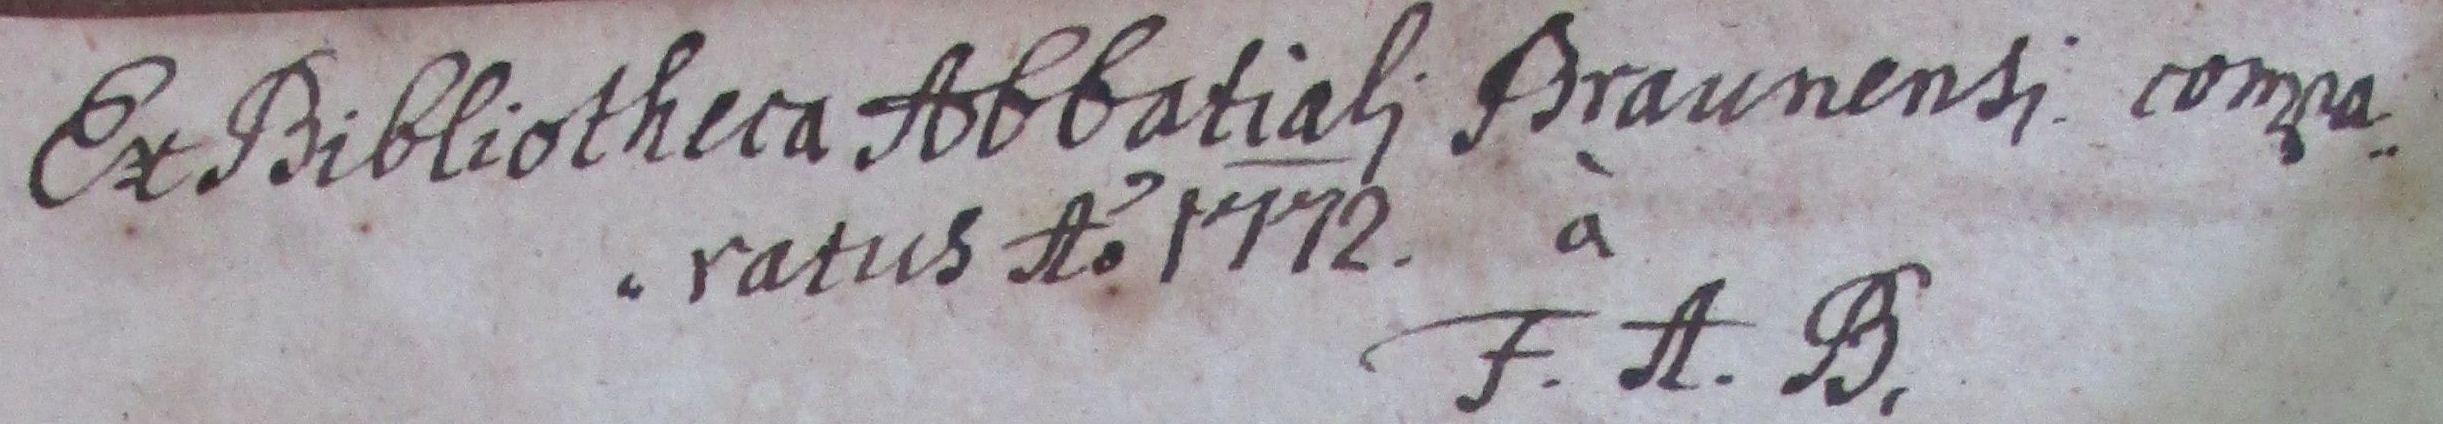 Ex Bibliotheca Abbatiali Braunensi compa„
„ratus Aº 1772. à
F. A. B.